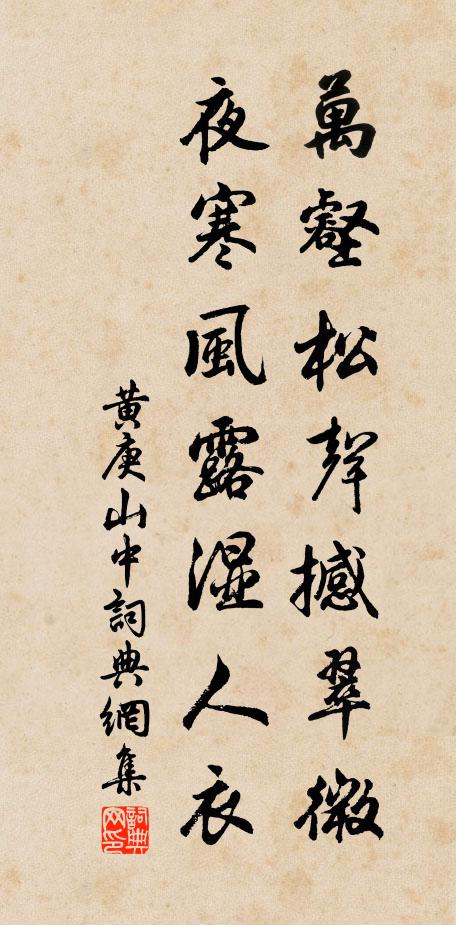 萬壑松聲撼翠微
夜寒風露濕人衣
黃庚山中詞典網集
詞典網印